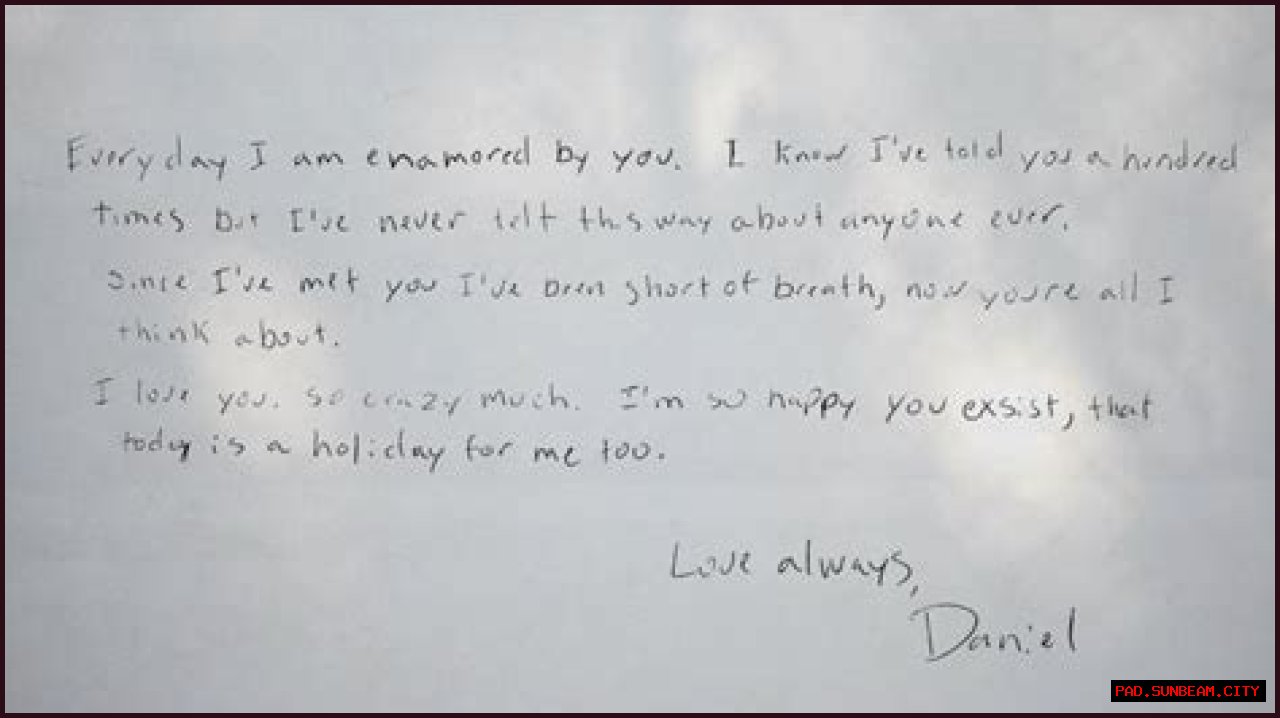 Everyday I am enamored by you. I know I've told you a hundred
times but I've never felt this way about anyone ever.
Since I've met you I've been short of breath, now you're all I
think about.
I love you. so crazy much. I'm so happy you exsist, that
today is a holiday for me too.
Love always,
Daniel
PAD.SUNBEAM.CITY